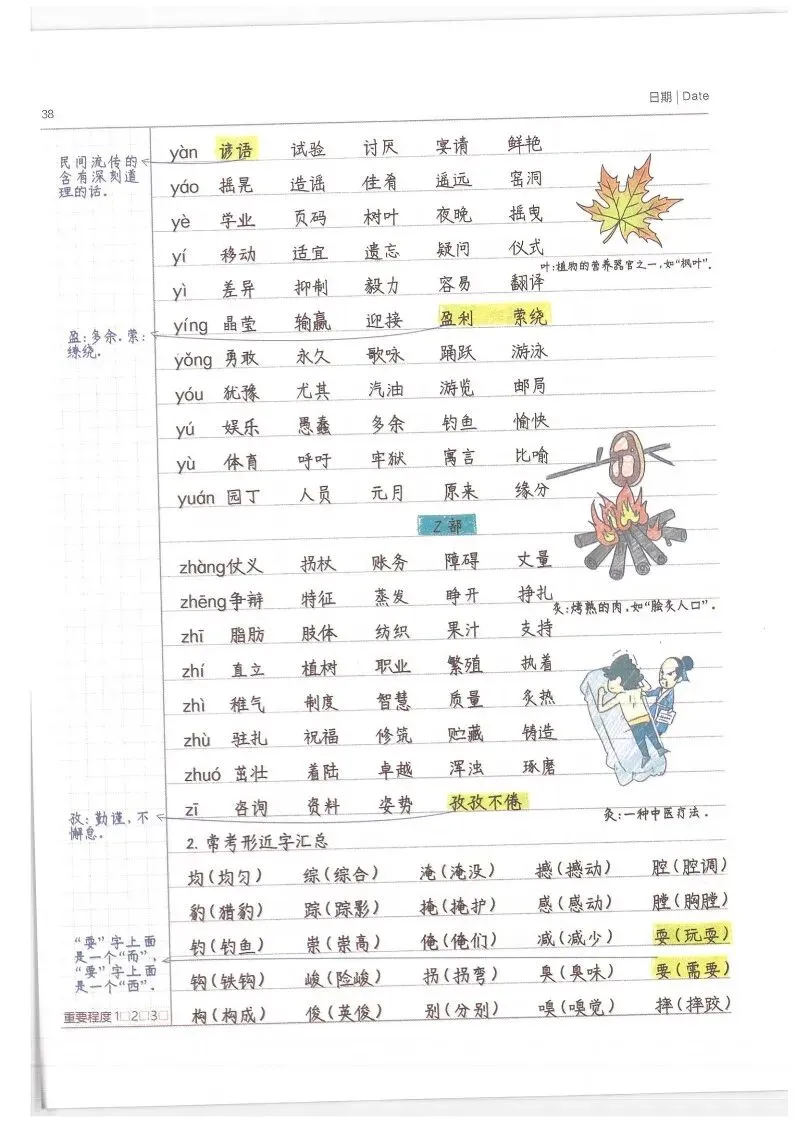 日期 | Date
38
yàn 谚语 试验 讨厌 宴请 鲜艳
民间流传的
含有深刻道
理的话.
yáo 摇晃 造谣 佳肴 遥远 窑洞
yè 学业 页码 树叶 夜晚 摇曳
yí 移动 适宜 遗忘 疑问 仪式
叶:植物的营养器官之一,如“枫叶”.
yì 差异 抑制 毅力 容易 翻译
yíng 晶莹 输赢 迎接 盈利 萦绕
盈:多余.萦:
缭绕.
yǒng 勇敢 永久 歌咏 踊跃 游泳
yóu 犹豫 尤其 汽油 游览 邮局
yú 娱乐 愚蠢 多余 钓鱼 愉快
yù 体育 呼吁 牢狱 寓言 比喻
yuán 园丁 人员 元月 原来 缘分
Z部
zhàng 仗义 拐杖 账务 障碍 丈量
zhēng 争辩 特征 蒸发 睁开 挣扎
炙:烤熟的肉,如“脍炙人口”.
zhī 脂肪 肢体 纺织 果汁 支持
zhí 直立 植树 职业 繁殖 执着
zhì 稚气 制度 智慧 质量 炙热
zhù 驻扎 祝福 修筑 贮藏 铸造
zhuó 茁壮 着陆 卓越 浑浊 琢磨
zī 咨询 资料 姿势 孜孜不倦
孜:勤谨,不
懈怠.
灸:一种中医疗法.
2.常考形近字汇总
均(均匀) 综(综合) 淹(淹没) 撼(撼动) 腔(腔调)
豹(猎豹) 踪(踪影) 掩(掩护) 感(感动) 膛(胸膛)
钓(钓鱼) 崇(崇高) 俺(俺们) 减(减少) 耍(玩耍)
“耍”字上面
是一个“而”,
“要”字上面
是一个“西”.
钩(铁钩) 峻(险峻) 拐(拐弯) 臭(臭味) 要(需要)
构(构成) 俊(英俊) 别(分别) 嗅(嗅觉) 摔(摔跤)
重要程度 1□2□3□